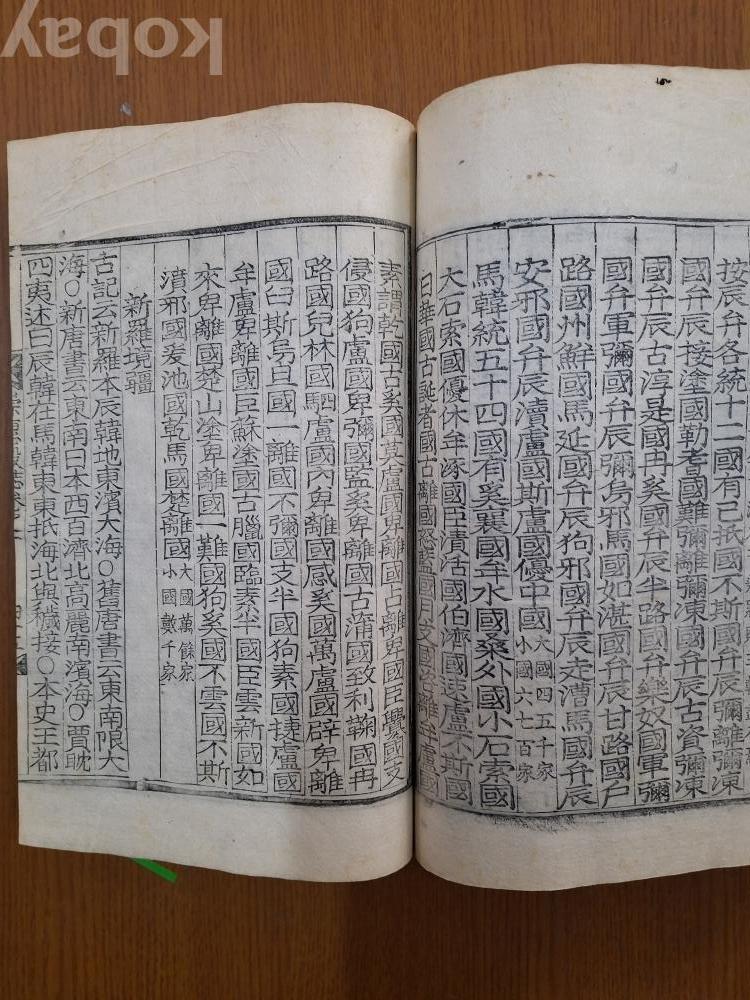 按辰弁各統十二國有已抵國弁辰彌離彌凍
國弁辰接塗國勤耆國難彌離彌凍國弁辰古資彌凍
國弁辰古淳是國冉奚國弁辰半路國弁樂奴國軍彌
國弁軍彌國弁辰彌烏邪馬國如湛國弁辰甘路國戶
路國州鮮國馬延國弁辰狗邪國弁辰走漕馬國弁辰
安邪國弁辰瀆盧國斯盧國優中國大國四五千家小國六七百家
馬韓統五十四國有奚襄國牟水國桑外國小石索國
大石索國優休牟涿國臣濆活國伯濟國速盧不斯國
日華國古誕者國古離國怒藍國月支國治離牟盧國
素謂乾國古奚國莫盧國卑離國占離卑國臣釁國支
侵國狗盧國卑彌國監奚卑離國古蒲國致利鞠國冉
路國兒林國駟盧國內卑離國感奚國萬盧國辟卑離
國臼斯烏旦國一離國不彌國支半國狗素國捷盧國
牟盧卑離國臣蘇塗國古臘國臨素半國臣雲新國如
來卑離國楚山塗卑離國一難國狗奚國不雲國不斯
濆邪國爰池國乾馬國楚離國大國萬餘家小國數千家
新羅境疆
古記云新羅本辰韓地東濱大海○舊唐書云東南限大
海○新唐書云東南日本西百濟北高麗南濱海○賈耽
四夷述曰辰韓在馬韓東東抵海北與穢接○本史王都
kobay